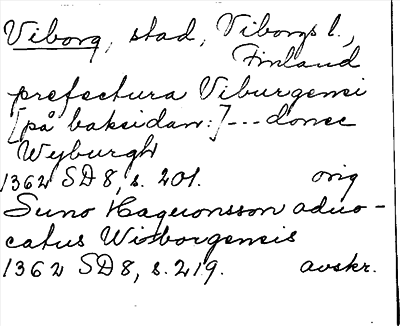 Viborg, stad, Viborgs l.,
Finland
prefectura Viburgensi
[på baksidan:] --- donec
Wyburgh
1362 SD 8, s. 201. orig
Suno Haquonsson aduo-
catus Wiborgensis
1362 SD 8, s. 219. avskr.